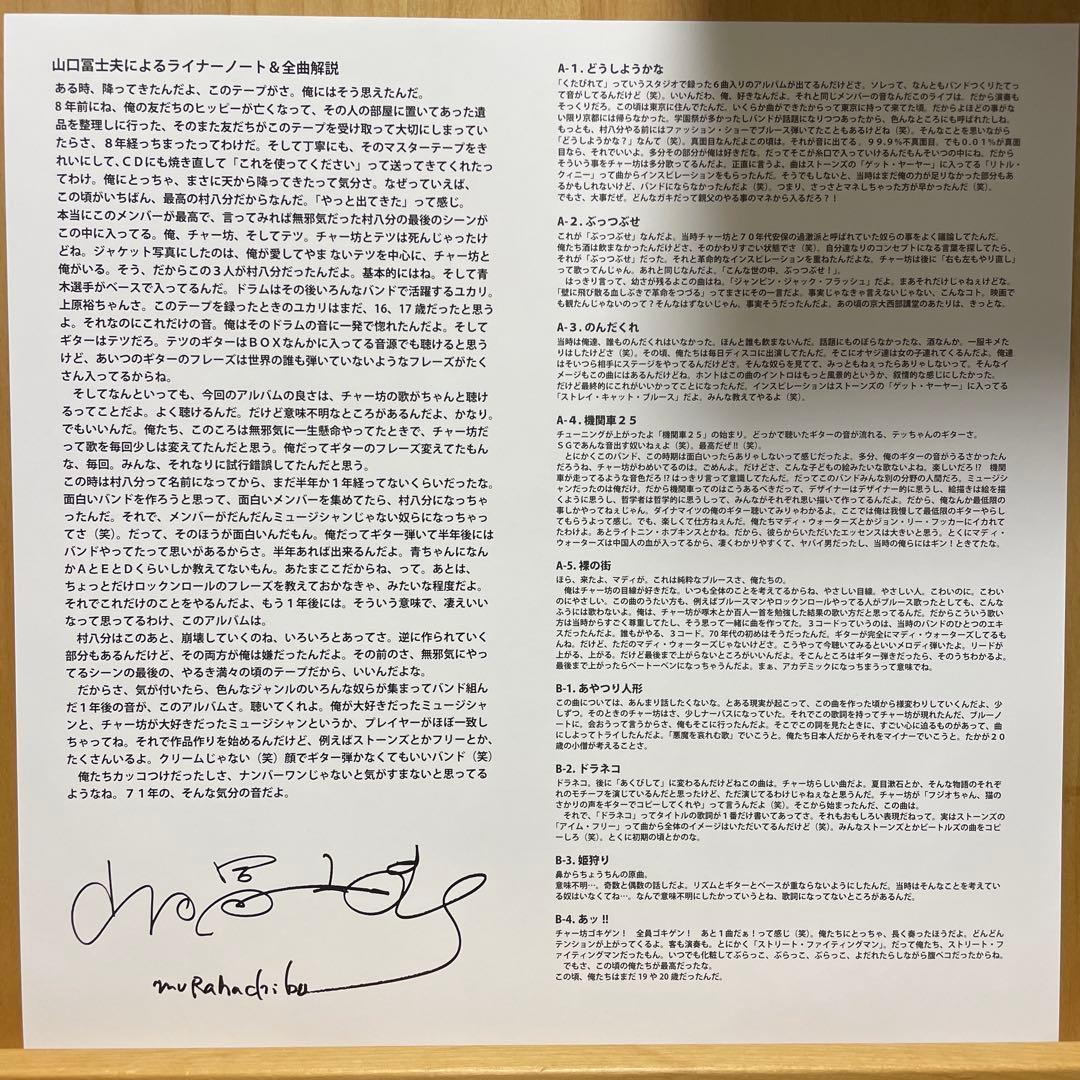 山口冨士夫によるライナーノート＆全曲解説
ある時、降ってきたんだよ、このテープがさ。俺にはそう思えたんだ。
８年前にね、俺の友だちのヒッピーが亡くなって、その人の部屋に置いてあった遺
品を整理しに行った、そのまた友だちがこのテープを受け取って大切にしまってい
たらさ、８年経っちまったってわけだ。そして丁寧にも、そのマスターテープをき
れいにして、ＣＤにも焼き直して「これを使ってください」って送ってきてくれたっ
てわけ。俺にとっちゃ、まさに天から降ってきたって気分さ。なぜっていえば、
この頃がいちばん、最高の村八分だからなんだ。「やっと出てきた」って感じ。
本当にこのメンバーが最高で、言ってみれば無邪気だった村八分の最後のシーンが
この中に入ってる。俺、チャー坊、そしてテツ。チャー坊とテツは死んじゃったけ
どね。ジャケット写真にしたのは、俺が愛してやま ないテツを中心に、チャー坊と
俺がいる。そう、だからこの３人が村八分だったんだよ。基本的にはね。そして青
木選手がベースで入ってるんだ。ドラムはその後いろんなバンドで活躍するユカリ。
上原裕ちゃんさ。このテープを録ったときのユカリはまだ、16、17 歳だったと思う
よ。それなのにこれだけの音。俺はそのドラムの音に一発で惚れたんだよ。そして
ギターはテツだろ。テツのギターはＢＯＸなんかに入ってる音源でも聴けると思う
けど、あいつのギターのフレーズは世界の誰も弾いていないようなフレーズがたく
さん入ってるからね。
　そしてなんといっても、今回のアルバムの良さは、チャー坊の歌がちゃんと聴け
るってことだよ。よく聴けるんだ。だけど意味不明なところがあるんだよ、かなり。
でもいいんだ。俺たち、このころは無邪気に一生懸命やってたときで、チャー坊だ
って歌を毎回少しは変えてたんだと思う。俺だってギターのフレーズ変えてたもん
な、毎回。みんな、それなりに試行錯誤してたんだと思う。
この時は村八分って名前になってから、まだ半年か１年経ってないくらいだったな。
面白いバンドを作ろうと思って、面白いメンバーを集めてたら、村八分になっちゃ
ったんだ。それで、メンバーがだんだんミュージシャンじゃない奴らになっちゃっ
てさ（笑）。だって、そのほうが面白いんだもん。俺だってギター弾いて半年後には
バンドやってたって思いがあるからさ。半年あれば出来るんだよ。青ちゃんになん
かＡとＥとＤくらいしか教えてないもん。あたまここだからね、って。あとは、
ちょっとだけロックンロールのフレーズを教えておかなきゃ、みたいな程度だよ。
それでこれだけのことをやるんだよ、もう１年後には。そういう意味で、凄えいい
なって思ってるわけ、このアルバムは。
　村八分はこのあと、崩壊していくのね、いろいろとあってさ。逆に作られていく
部分もあるんだけど、その両方が俺は嫌だったんだよ。その前のさ、無邪気にやっ
てるシーンの最後の、やるき満々の頃のテープだから、いいんだよな。
　だからさ、気が付いたら、色んなジャンルのいろんな奴らが集まってバンド組ん
だ１年後の音が、このアルバムさ。聴いてくれよ。俺が大好きだったミュージシャ
ンと、チャー坊が大好きだったミュージシャンというか、プレイヤーがほぼ一致し
ちゃってね。それで作品作りを始めるんだけど、例えばストーンズとかフリーとか、
たくさんいるよ。クリームじゃない（笑）顔でギター弾かなくてもいいバンド（笑）
　俺たちカッコつけだったしさ、ナンバーワンじゃないと気がすまないと思ってる
ようなね。７１年の、そんな気分の音だよ。
山口冨士夫
muRahachibu
A-1 . どうしようかな
「くたびれて」っていうスタジオで録った６曲入りのアルバムが出てるんだけどさ。ソレって、なんともバンドつくりたてっ
て音がしてるんだけど（笑）。いいんだわ、俺、好きなんだよ。それと同じメンバーの音なんだこのライブは。だから演奏も
そっくりだろ。この頃は東京に住んでたんだ。いくらか曲ができたからって東京に持って来てた頃。だからよほどの事がな
い限り京都には帰らなかった。学園祭が多かったしバンドが話題になりつつあったから、色んなところにも呼ばれたしね。
もっとも、村八分やる前にはファッション・ショーでブルース弾いてたこともあるけどね（笑）。そんなことを思いながら
「どうしようかな？」なんて（笑）。真面目なんだよこの頃は。それが音に出てる。９９.９％不真面目。でも０.０１％が真面
目なら、それでいいよ。多分その部分が俺は好きだな。だってこが糸口で入っていけるんだもんそいつの中にね。だから
そういう事をチャー坊は多分歌ってるんだよ。正直に言うよ、曲はストーンズの「ゲット・ヤーヤー」に入ってる「リトル・
クィニー」って曲からインスピレーションをもらったんだ。そうでもしないと、当時はまだ俺の力が足りなかった部分もあ
るかもしれないけど、バンドにならなかったんだよ（笑）。つまり、さっさとマネしちゃった方が早かったんだ（笑）。
でもさ、大事だぜ。どんなガキだって親父のやる事のマネから入るだろ？！
A-２. ぶっつぶせ
これが「ぶっつぶせ」なんだよ。当時チャー坊と７０年代安保の過激派と呼ばれていた奴らの事をよく議論してたんだ。
俺たち酒は飲まなかったんだけどさ、そのかわりすごい状態でさ（笑）。自分達なりのコンセプトになる言葉を探してたら、
それが「ぶっつぶせ」だった。それと革命的なインスピレーションを重ねたんだよな。チャー坊は後に「右も左もやり直し」
って歌ってんじゃん。あれと同じなんだよ。「こんな世の中、ぶっつぶせ！」。
　はっきり言って、幼さが残るよこの曲はね。「ジャンピン・ジャック・フラッシュ」だよ。まあそれだけじゃねぇけどな。
「壁に飛び散る血しぶきで革命をつづる」ってまさにその一言だよ。事実じゃなきゃ言えないじゃない、こんなコト。映画で
も観たんじゃないのって？そんなはずないじゃん。事実そうだったんだよ。あの頃の京大西部講堂のあたりは、きっとな。
A-３. のんだくれ
当時は俺達、誰ものんだくれはいなかった。ほんと誰も飲まないんだ。話題にものぼらなかったな、酒なんか。一服キメた
りはしたけどさ（笑）。その頃、俺たちは毎日ディスコに出演してたんだ。そこにオヤジ達は女の子連れてくるんだよ。俺達
はそいつら相手にステージをやってるんだけどさ。そんな奴らを見てて、みっともねぇったらありゃしないって。そんなイ
メージもこの曲にはあるんだけどね。ホントはこの曲のイントロはもっと風景的というか、叙情的な感じにしたかった。
だけど最終的にこれがいいかってことになったんだ。インスピレーションはストーンズの「ゲット・ヤーヤー」に入ってる
「ストレイ・キャット・ブルース」だよ。みんな教えてやるよ（笑）。
A-４. 機関車２５
チューニングが上がったよ「機関車２５」の始まり。どっかで聴いたギターの音が流れる、テッちゃんのギターさ。
ＳＧであんな音出す奴いねぇよ（笑）。最高だぜ!!（笑）。
　とにかくこのバンド、この時期は面白いったらありゃしないって感じだったよ。多分、俺のギターの音がうるさかったん
だろうね、チャー坊がわめいてるのは。ごめんよ。だけどさ、こんな子どもの絵みたいな歌ないよね。楽しいだろ!?　機関
車が走ってるような音色だろ!? はっきり言って意識してたんだ。だってこのバンドみんな別の分野の人間だろ。ミュージシ
ャンだったのは俺だけ。だから機関車ってのはこうあるべきだって、デザイナーはデザイナー的に思うし、絵描きは絵を描
くように思うし、哲学者は哲学的に思うしって、みんながそれぞれ思い描いて作ってるんだよ。だから、俺なんか最低限の
事しかやってねぇじゃん。ダイナマイツの俺のギター聴いてみりゃわかるよ。ここでは俺は我慢して最低限のギターやらし
てもらうよって感じ。でも、楽しくて仕方ねぇんだ。俺たちマディ・ウォーターズとかジョン・リー・フッカーにイカれて
たわけよ。あとライトニン・ホプキンスとかね。だから、彼らからいただいたエッセンスは大きいと思う。とくにマディ・
ウォーターズは中国人の血が入ってるから、凄くわかりやすくて、ヤバイ男だったし、当時の俺らにはギン！ときてたな。
A-５. 裸の街
ほら、来たよ、マディが。これは純粋なブルースさ、俺たちの。
　俺はチャー坊の目線が好きだな。いつも全体のことを考えてるからね、やさしい目線。やさしい人。こわいのに。こわい
のにやさしい。この曲のうたい方も、例えばブルースマンやロックンロールやってる人がブルース歌ったとしても、こんな
ふうには歌わないよ。俺は、チャー坊が啄木とか百人一首を勉強した結果の歌い方だと思ってるんだ。だからこういう歌い
方は当時からすごく尊重してたし、そう思って一緒に曲を作ってた。３コードっていうのは、当時のバンドのひとつのエキ
スだったんだよ。誰もがやる、３コード。70 年代の初めはそうだったんだ。ギターが完全にマディ・ウォーターズしてるも
んね。だけど、ただのマディ・ウォーターズじゃないけどさ。こうやって今聴いてみるといいメロディ弾いたよ。リードが
上がる、上がる。だけど最後まで上がらないところがいいんだよ。そこんところはギター弾きだったら、そのうちわかるよ。
最後まで上がったらベートーベンになっちゃうんだよ。まぁ、アカデミックになっちまうって意味でね。
B-1. あやつり人形
この曲については、あんまり話したくないな。とある現実が起こって、この曲を作った頃から様変わりしていくんだよ、少
しずつ。そのときのチャー坊はさ、少しナーバスになっていた。それでこの歌詞を持ってチャー坊が現れたんだ、ブルーノ
ートに。会おうって言うからさ、俺もそこに行ったんだよ。そこでこの詞を見たときに、すごい心に迫るものがあって、曲
にしよってトライしたんだよ。「悪魔を哀れむ歌」でいこうと。俺たち日本人だからそれをマイナーでいこうと。たかが２０
歳の小僧が考えることさ。
B-2. ドラネコ
ドラネコ。後に「あくびして」に変わるんだけどねこの曲は。チャー坊らしい曲だよ。夏目漱石とか、そんな物語のそれぞ
れのモチーフを演じているんだと思ったけど、ただ演じてるわけじゃねぇなと思うんだ。チャー坊が「フジオちゃん、猫の
さかりの声をギターでコピーしてくれや」って言うんだよ（笑）。そこから始まったんだ、この曲は。
　それで、「ドラネコ」ってタイトルの歌詞が１番だけ書いてあってさ。それもおもしろい表現だねって。実はストーンズの
「アイム・フリー」って曲から全体のイメージはいただいてるんだけど（笑）。みんなストーンズとかビートルズの曲をコピ
ーしろ（笑）。とくに初期の頃とかのな。
B-3. 姫狩り
鼻からちょうちんの原曲。
意味不明…。奇数と偶数の話しだよ。リズムとギターとベースが重ならないようにしたんだ。当時はそんなことを考えてい
る奴はいなくてね…。なんで意味不明にしたかっていうとね、歌詞になってないところがあるんだ。
B-4. あッ !!
チャー坊ゴキゲン！　全員ゴキゲン！　あと１曲だぁ！って感じ（笑）。俺たちにとっちゃ、長く奏ったほうだよ。どんどん
テンションが上がってくるよ。客も演奏も。とにかく「ストリート・ファイティングマン」。だって俺たち、ストリート・フ
ァイティングマンだったもん。いつでも化粧してぶらっこ、ぶらっこ、ぶらっこ、よだれたらしながら腹ペコだったからね。
　でもさ、この頃の俺たちが最高だったな。
この頃、俺たちはまだ 19 や 20 歳だったんだ。